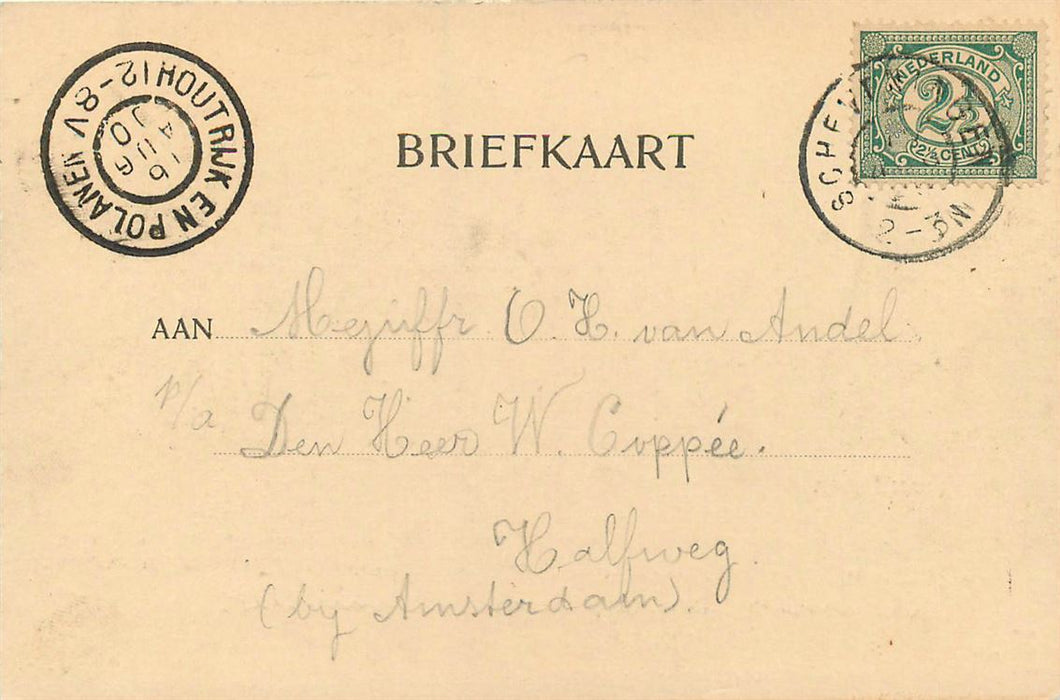 HOUTRIJK EN POLANEN
12-8V
16
AUG
NEDERLAND
2½
2½ CENT
2-3N
BRIEFKAART
AAN Mejuffr O. H. van Andel
p/a Den Heer W. Coppée.
Halfweg
(by Amsterdam).